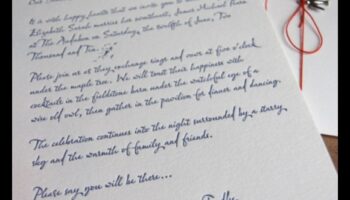 It is with happy hearts that we invite you to
Elizabeth Sarah marries her sweetheart, James Michael
at The Audubon on Saturday, the twelfth of June, Two
Thousand and Ten.
Please join us as they exchange rings and vows at five o'clock
under the maple tree. We will toast their happiness with
cocktails in the fieldstone barn under the watchful eye of a
wise old owl, then gather in the pavilion for dinner and dancing.
The celebration continues into the night surrounded by a starry
sky and the warmth of family and friends.
Please say you will be there...